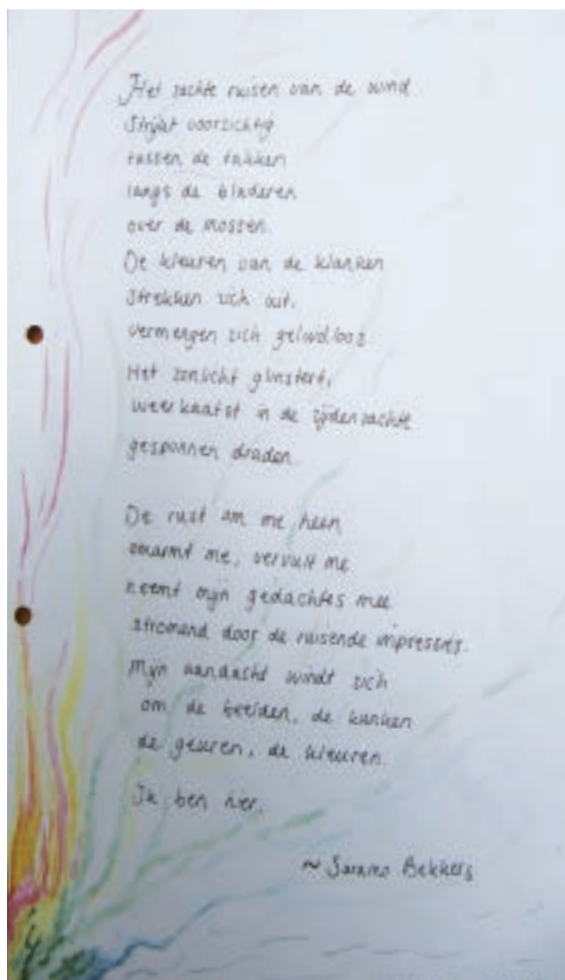 Het zachte ruisen van de wind
Strijkt voorzichtig
tussen de takken
langs de bladeren
over de mossen.
De kleuren van de klanken
strekken zich uit,
vermengen zich geluidloos
Het zonlicht glinstert,
weerkaatst in de zijdenzachte
gesponnen draden.
De rust om me heen
omarmt me, vervult me
neemt mijn gedachtes mee
stromend door de ruisende impressies.
Mijn aandacht windt zich
om de beelden, de klanken
de geuren, de kleuren.
Ik ben hier.
~ Bekkers